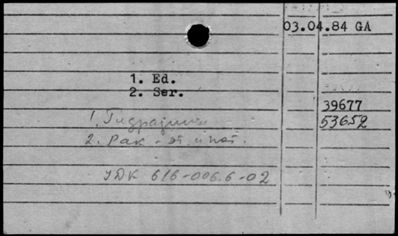 03.04.84 GA
1. Ed.
2. Ser.
39677
53652
1. Гидразины
2. Рак - эт. и пат.
УДК 616-006.6-02